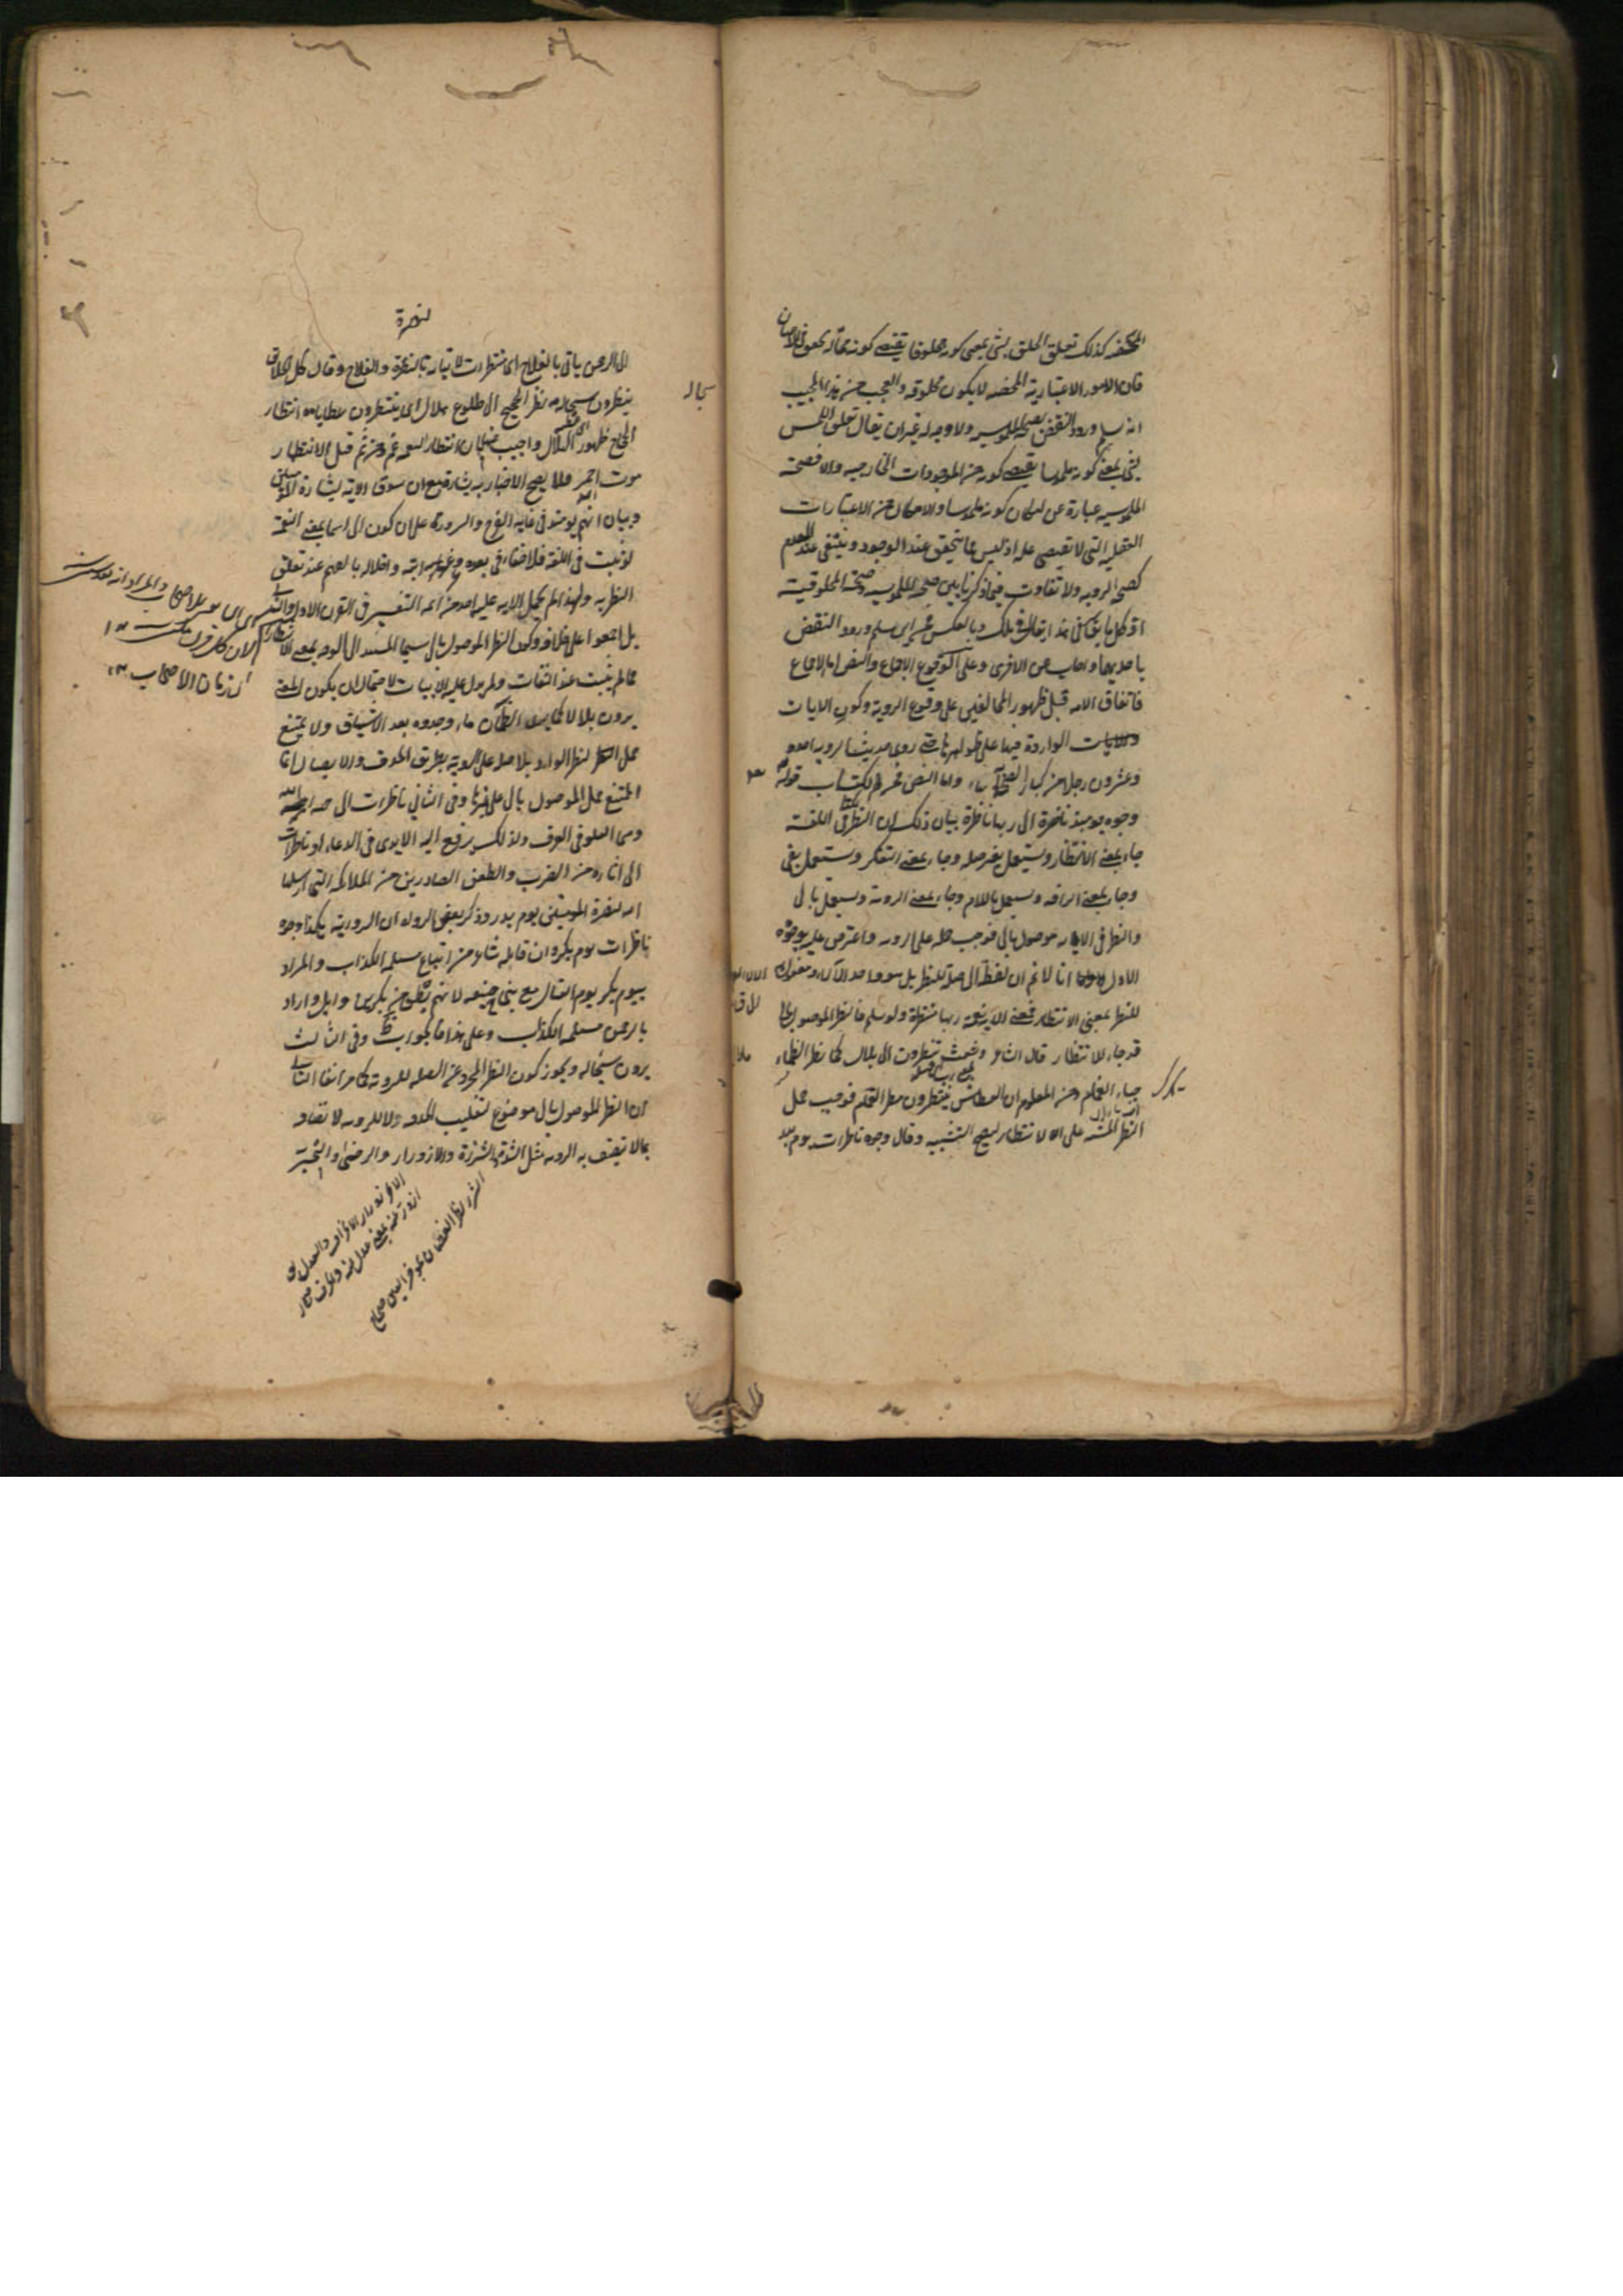 المحضه كذلك تعلق الخلق بشئ بمعنى كونه مخلوقا يقتضى كونه مما له تحقق فى الاعيان
فان الامور الاعتبارية المحضه لا يكون مخلوقه والعجب من هذا المجيب
انه سلم ورود النقض بصحة الملموسيه ولا وجه له غير ان يقال تعلق اللمس
بشئ بمعنى كونه ملموسا يقتضى كونه من الموجودات الخارجيه والا فصحة
الملموسيه عبارة عن امكان كونه ملموسا والامكان من الاعتبارات
العقليه التى لا تقتضى علة اذ ليس مما يتحقق عند الوجود وينتفى عند العدم
كصحة الرويه ولا تفاوت فيما ذكرنا بين صحة الملموسيه وصحة المخلوقيه
اذ كل ما يقال فى هذا يقال فى تلك وبالعكس سلم ورود النقض
باحديهما واجاب عن الاخرى وعلى الوقوع الاجماع والنص اما الاجماع
فاتفاق الامه قبل ظهور المخالفين على وقوع الروية وكون الايات
الواردة فيها على ظواهرها حتى روى حديث الرويه احد
وعشرون رجلا من كبار الصحابة واما النص فمن الكتاب قوله تع
وجوه يومئذ ناضرة الى ربها ناظرة بيان ذلك ان النظر فى اللغة
جاء بمعنى الانتظار ويستعمل بغير صله وجاء بمعنى التفكر ويستعمل بفى
وجاء بمعنى الرافه ويستعمل باللام وجاء بمعنى الروية ويستعمل بالى
والنظر فى الايه موصول بالى فوجب حمله على الرويه واعترض عليه بوجوه
الاول انا لا نم ان لفظ الى صلة للنظر بل هو واحد الآلاء ومفعول
للنظر بمعنى الانتظار فمعنى الايه نعمة ربها منتظرة ولو سلم فالنظر الموصول بالى
قد جاء للانتظار قال الشاعر وشعث ينظرون الى بلال كما نظر الظماء
حياء الغمام ومن المعلوم ان العطاش ينتظرون مطر الغمام فوجب حمل
النظر المشبه على الانتظار ليصح التشبيه وقال وجوه ناظرات يوم بدر
لنصرة
الى الرحمن ياتى بالفلاح اى منتظرات لاتيانه بالنصرة والفلاح وقال كل الخلائق
ينظرون سجاله نظر الحجيج الى طلوع هلال اى ينتظرون عطاياه انتظار
الحجاج ظهور الهلال واجيب بان انتظار النعمه غم ومن ثم قيل الانتظار
موت احمر فلا يصح الاخبار به بشارة مع ان سوق الاية لبشارة المؤمنين
وبيان انهم يومئذ فى غاية الفرح والسرور على ان كون الى اسما بمعنى النعمة
لو ثبت فى اللغة فلا خفاء فى بعده وغرابته واخلاله بالفهم عند تعلق
النظر به ولهذا لم يحمل الايه عليه احد من ائمه التفسير فى القرن الاول والثانى
بل اجمعوا على خلافه وكون النظر الموصول بالى سيما المسند الى الوجه بمعنى الانتظار
مما لم يثبت عند الثقات ولم يدل عليه الابيات لاحتمال ان يكون المعنى
يرون بلالا كما يرى الظمآن ماء وجدوه بعد الاشتياق ولا يمتنع
حمل النظر الوارد بلا صلة على الروية بطريق الحذف والايصال انما
الممتنع حمل الموصول بالى على غيرها وفى الثانى ناظرات الى جهة الله
وهى العلو فى العرف ولذلك يرفع اليه الايدى فى الدعاء او ناظرات
الى آثاره من الضرب والطعن الصادرين من الملائكة التى ارسلها
الله لنصرة المؤمنين يوم بدر وذكر بعض الرواة ان الرواية هكذا وجوه
ناظرات يوم بكر وان قائله شاعر من اتباع مسيلمة الكذاب والمراد
بيوم بكر يوم القتال مع بنى حنيفه لانهم بطن من بكر بن وائل واراد
بالرحمن مسيلمه الكذاب وعلى هذا فالجواب ظ وفى الثالث
يرون سجاله ويجوز كون النظر المجرد عن الصله للروية كما مر آنفا الثانى
ان النظر الموصول بالى موضوع لتقليب الحدقه لا للرويه لاتصافه
بما لا يتصف به الرويه مثل الشدة والشزرة والازورار والرضى والتجبر
سجاله